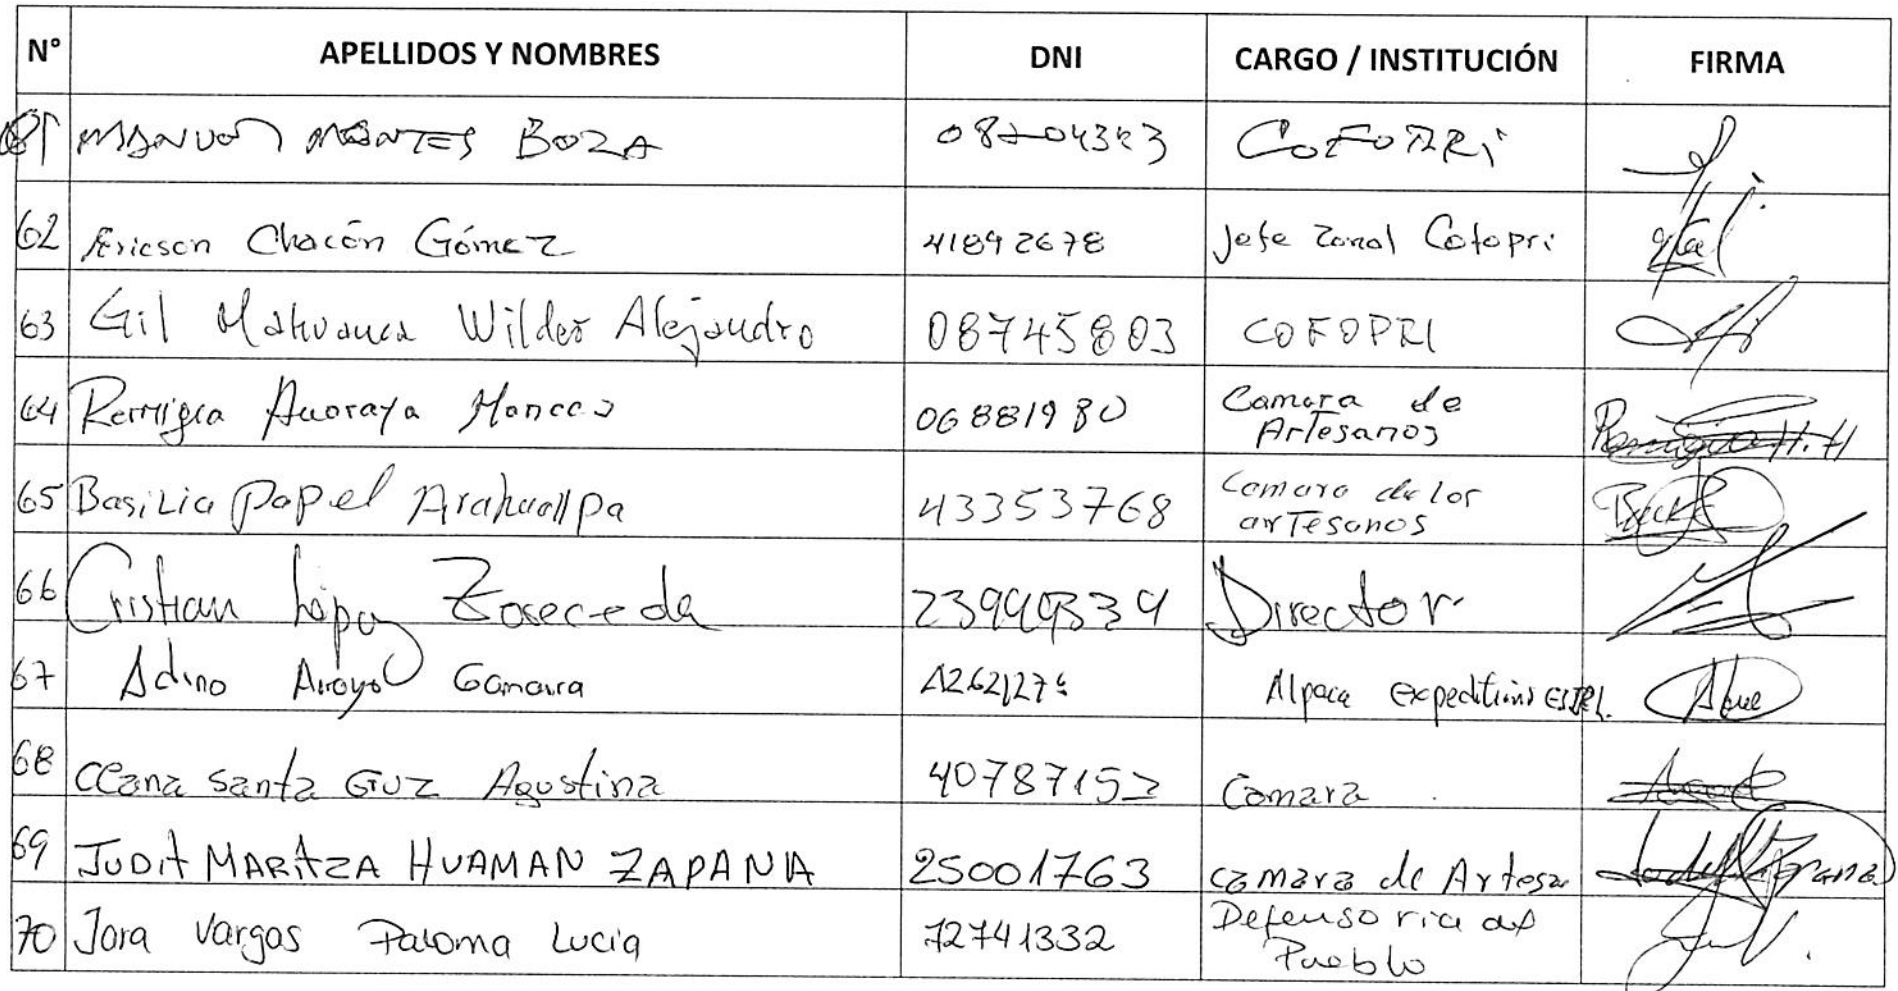 N° APELLIDOS Y NOMBRES DNI CARGO / INSTITUCIÓN FIRMA
61 MANUEL MONTES BOZA COFOPRI
62 Ericson Chacón Gómez 41892678 Jefe Zonal Cofopri
63 Gil Mahuanca Wilder Alejandro 08745803 COFOPRI
64 Remigia 06881980 Camara de
Artesanos
65 Basilia Papel 43353768 Camara de los
arTesanos
66 Cristian Director
67 Arroyo Gamarra Alpaca expeditions
68 CCana Santa Cruz Agustina 40787152 Camara
69 JUDIT MARITZA HUAMAN ZAPANA 25001763 camara de Artesa
70 Jara Vargas Paloma Lucia 72741332 Defensoria del
Pueblo